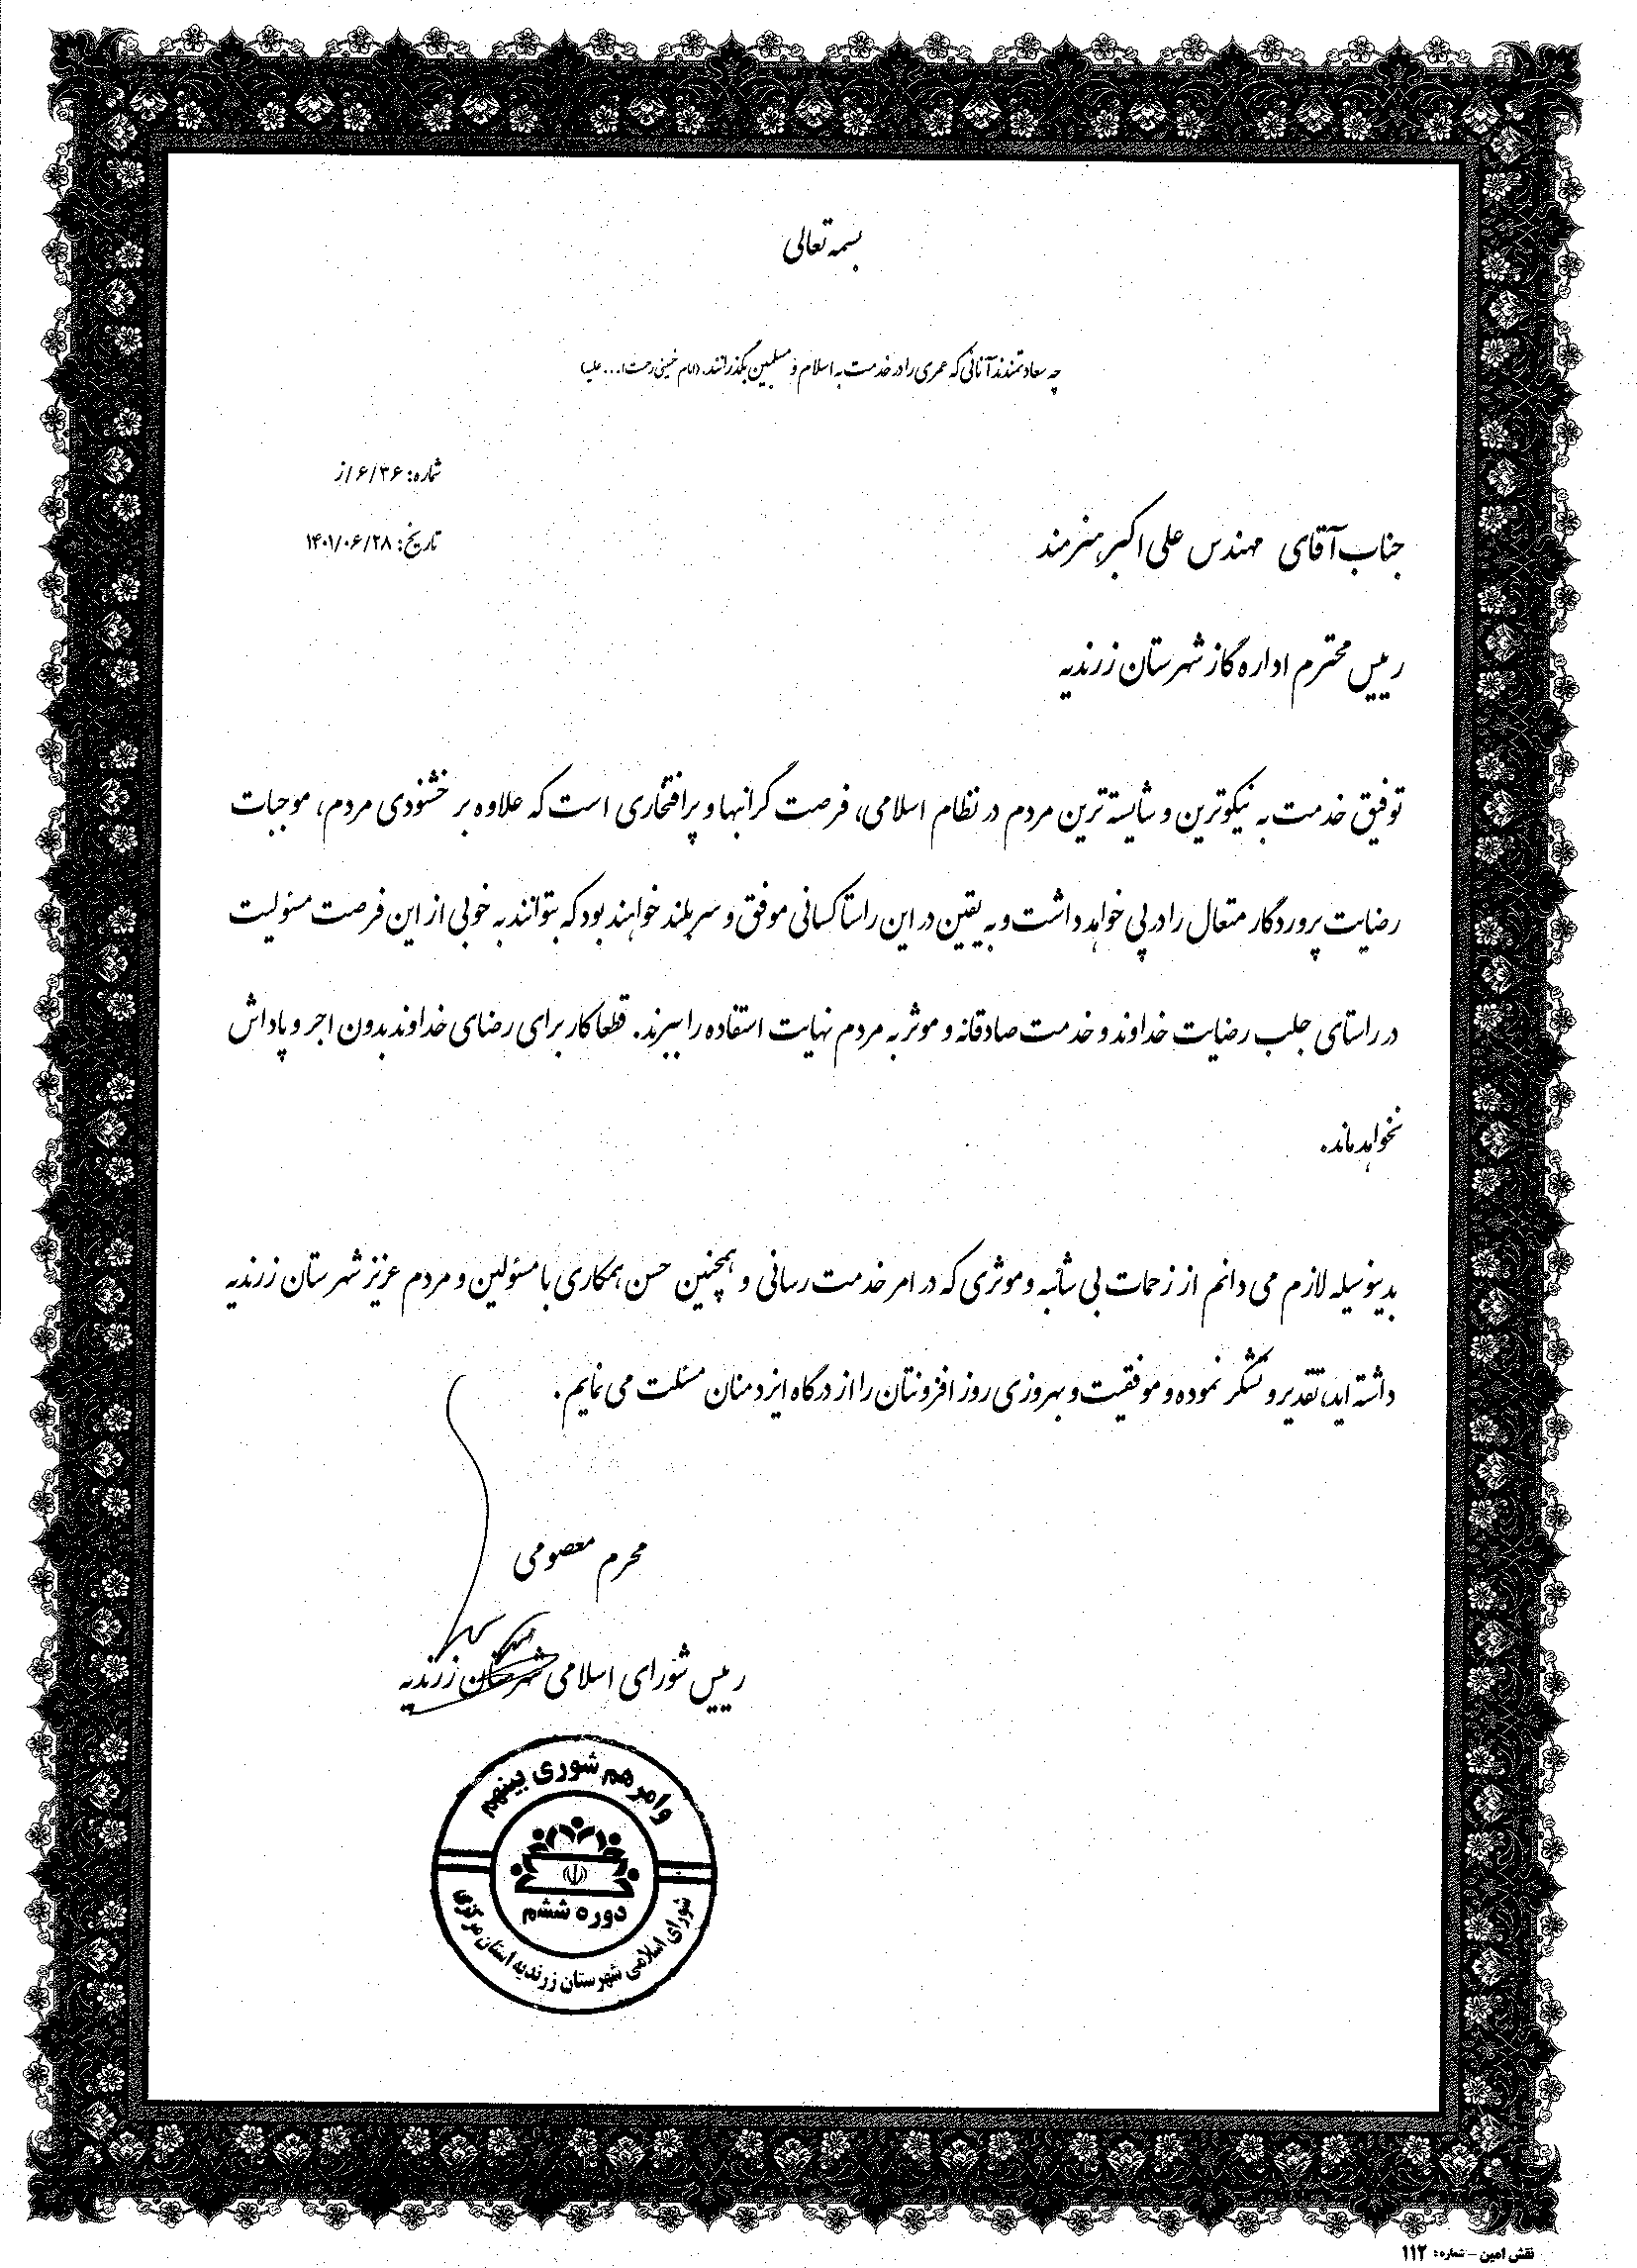 بسمه تعالی
چه سعادتمندند آنانی که عمری را در خدمت به اسلام و مسلمین بگذرانند. (امام خمینی رحمت ا... علیه)
شماره: ۶/۳۶/ز
تاریخ: ۱۴۰۱/۰۶/۲۸
جناب آقای مهندس علی اکبر هنرمند
رییس محترم اداره گاز شهرستان زرندیه
توفیق خدمت به نیکوترین و شایسته ترین مردم در نظام اسلامی، فرصت گرانبها و پرافتخاری است که علاوه بر خشنودی مردم، موجبات
رضایت پروردگار متعال را در پی خواهد داشت و به یقین در این راستا کسانی موفق و سربلند خواهند بود که بتوانند به خوبی از این فرصت مسئولیت
در راستای جلب رضایت خداوند و خدمت صادقانه و موثر به مردم نهایت استفاده را ببرند. قطعا کار برای رضای خداوند بدون اجر و پاداش
نخواهد ماند.
بدینوسیله لازم می دانم از زحمات بی شائبه و موثری که در امر خدمت رسانی و همچنین حسن همکاری با مسئولین و مردم عزیز شهرستان زرندیه
داشته اید، تقدیر و تشکر نموده و موفقیت و بهروزی روز افزونتان را از درگاه ایزد منان مسئلت می نمایم.
محرم معصومی
رییس شورای اسلامی شهرستان زرندیه
وامرهم شوری بینهم
دوره ششم
شورای اسلامی شهرستان زرندیه استان مرکزی
نقش امین - شماره: ۱۱۲